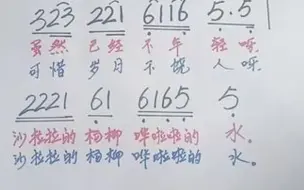 323 221 6116 5.5
虽然 已经 不年 轻呀
可惜 岁月 不饶 人呀
2221 61 6165 5
沙拉拉的 杨柳 哗啦啦的 水。
沙拉拉的 杨柳 哗啦啦的 水。